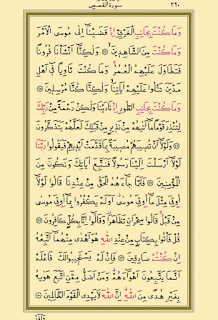 سُورَةُ القَصَصِ ٣٩٠
وَمَا كُنْتَ بِجَانِبِ الْغَرْبِيِّ اِذْ قَضَيْنَا اِلٰى مُوسَى الْاَمْرَ
وَمَا كُنْتَ مِنَ الشَّاهِدِينَ ۞ وَلٰكِنَّا اَنْشَأْنَا قُرُونًا
فَتَطَاوَلَ عَلَيْهِمُ الْعُمُرُ وَمَا كُنْتَ ثَاوِيًا فِي اَهْلِ
مَدْيَنَ تَتْلُوا عَلَيْهِمْ اٰيَاتِنَا وَلٰكِنَّا كُنَّا مُرْسِلِينَ ۞
وَمَا كُنْتَ بِجَانِبِ الطُّورِ اِذْ نَادَيْنَا وَلٰكِنْ رَحْمَةً مِنْ رَبِّكَ
لِتُنْذِرَ قَوْمًا مَا اَتٰيهُمْ مِنْ نَذِيرٍ مِنْ قَبْلِكَ لَعَلَّهُمْ يَتَذَكَّرُونَ
۞ وَلَوْلَا اَنْ تُصِيبَهُمْ مُصِيبَةٌ بِمَا قَدَّمَتْ اَيْدِيهِمْ فَيَقُولُوا رَبَّنَا
لَوْلَا اَرْسَلْتَ اِلَيْنَا رَسُولًا فَنَتَّبِعَ اٰيَاتِكَ وَنَكُونَ مِنَ
الْمُؤْمِنِينَ ۞ فَلَمَّا جَاءَهُمُ الْحَقُّ مِنْ عِنْدِنَا قَالُوا لَوْلَا
اُوتِيَ مِثْلَ مَا اُوتِيَ مُوسٰى اَوَلَمْ يَكْفُرُوا بِمَا اُوتِيَ مُوسٰى
مِنْ قَبْلُ قَالُوا سِحْرَانِ تَظَاهَرَا وَقَالُوا اِنَّا بِكُلٍّ كَافِرُونَ
۞ قُلْ فَأْتُوا بِكِتَابٍ مِنْ عِنْدِ اللّٰهِ هُوَ اَهْدٰى مِنْهُمَا اَتَّبِعْهُ
اِنْ كُنْتُمْ صَادِقِينَ ۞ فَاِنْ لَمْ يَسْتَجِيبُوا لَكَ فَاعْلَمْ
اَنَّمَا يَتَّبِعُونَ اَهْوَاءَهُمْ وَمَنْ اَضَلُّ مِمَّنِ اتَّبَعَ هَوٰيهُ
بِغَيْرِ هُدًى مِنَ اللّٰهِ اِنَّ اللّٰهَ لَا يَهْدِي الْقَوْمَ الظَّالِمِينَ ۞